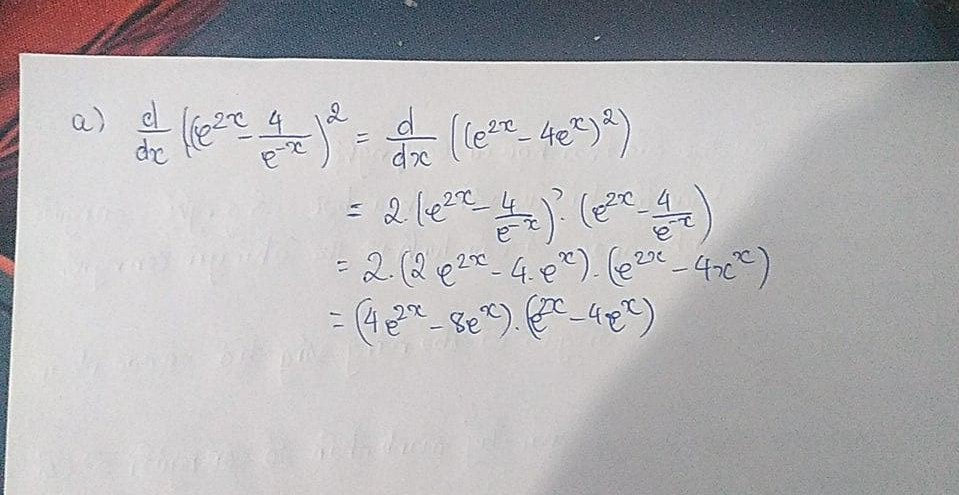 a) d/dx ((e^2x - 4/e^-x)^2 = d/dx ((e^2x - 4e^x)^2)
= 2.(e^2x - 4/e^-x)'.(e^2x - 4/e^-x)
= 2.(2e^2x - 4.e^x).(e^2x - 4x^x)
= (4e^2x - 8e^x).(e^2x - 4e^x)